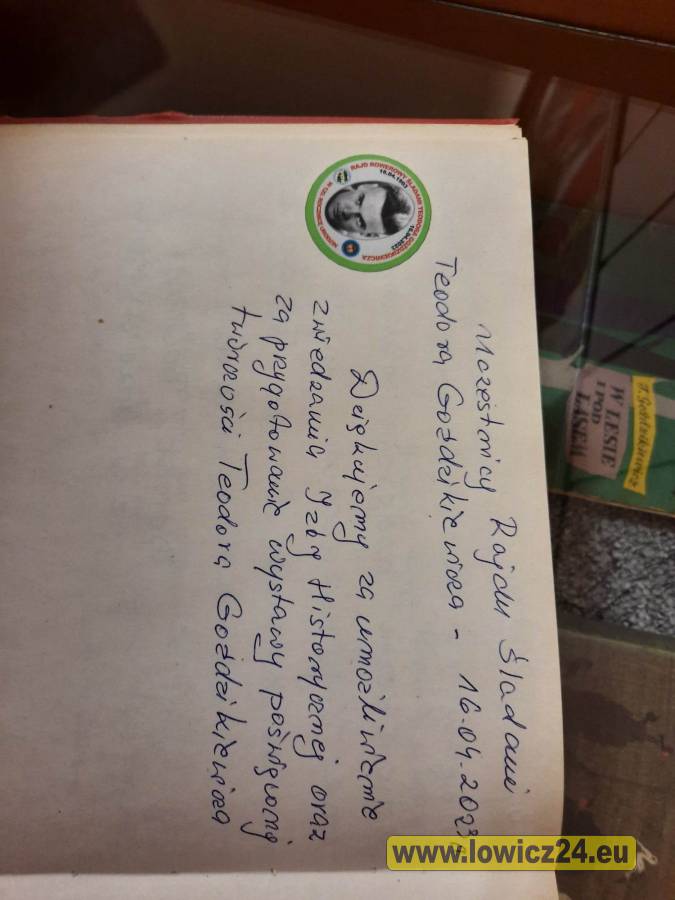 Uczestnicy Rajdu Śladami
Teodora Goździkiewicza - 16.04.2023r
Dziękujemy za umożliwienie
zwiedzania Izby Historycznej oraz
za przygotowanie wystawy poświęconej
twórczości Teodora Goździkiewicza
RAJD ROWEROWY ŚLADAMI TEODORA GOŹDZIKIEWICZA
18.04.1903
16.04.2023
T. Goździkiewicz
W LESIE
I POD
LASEM
www.lowicz24.eu